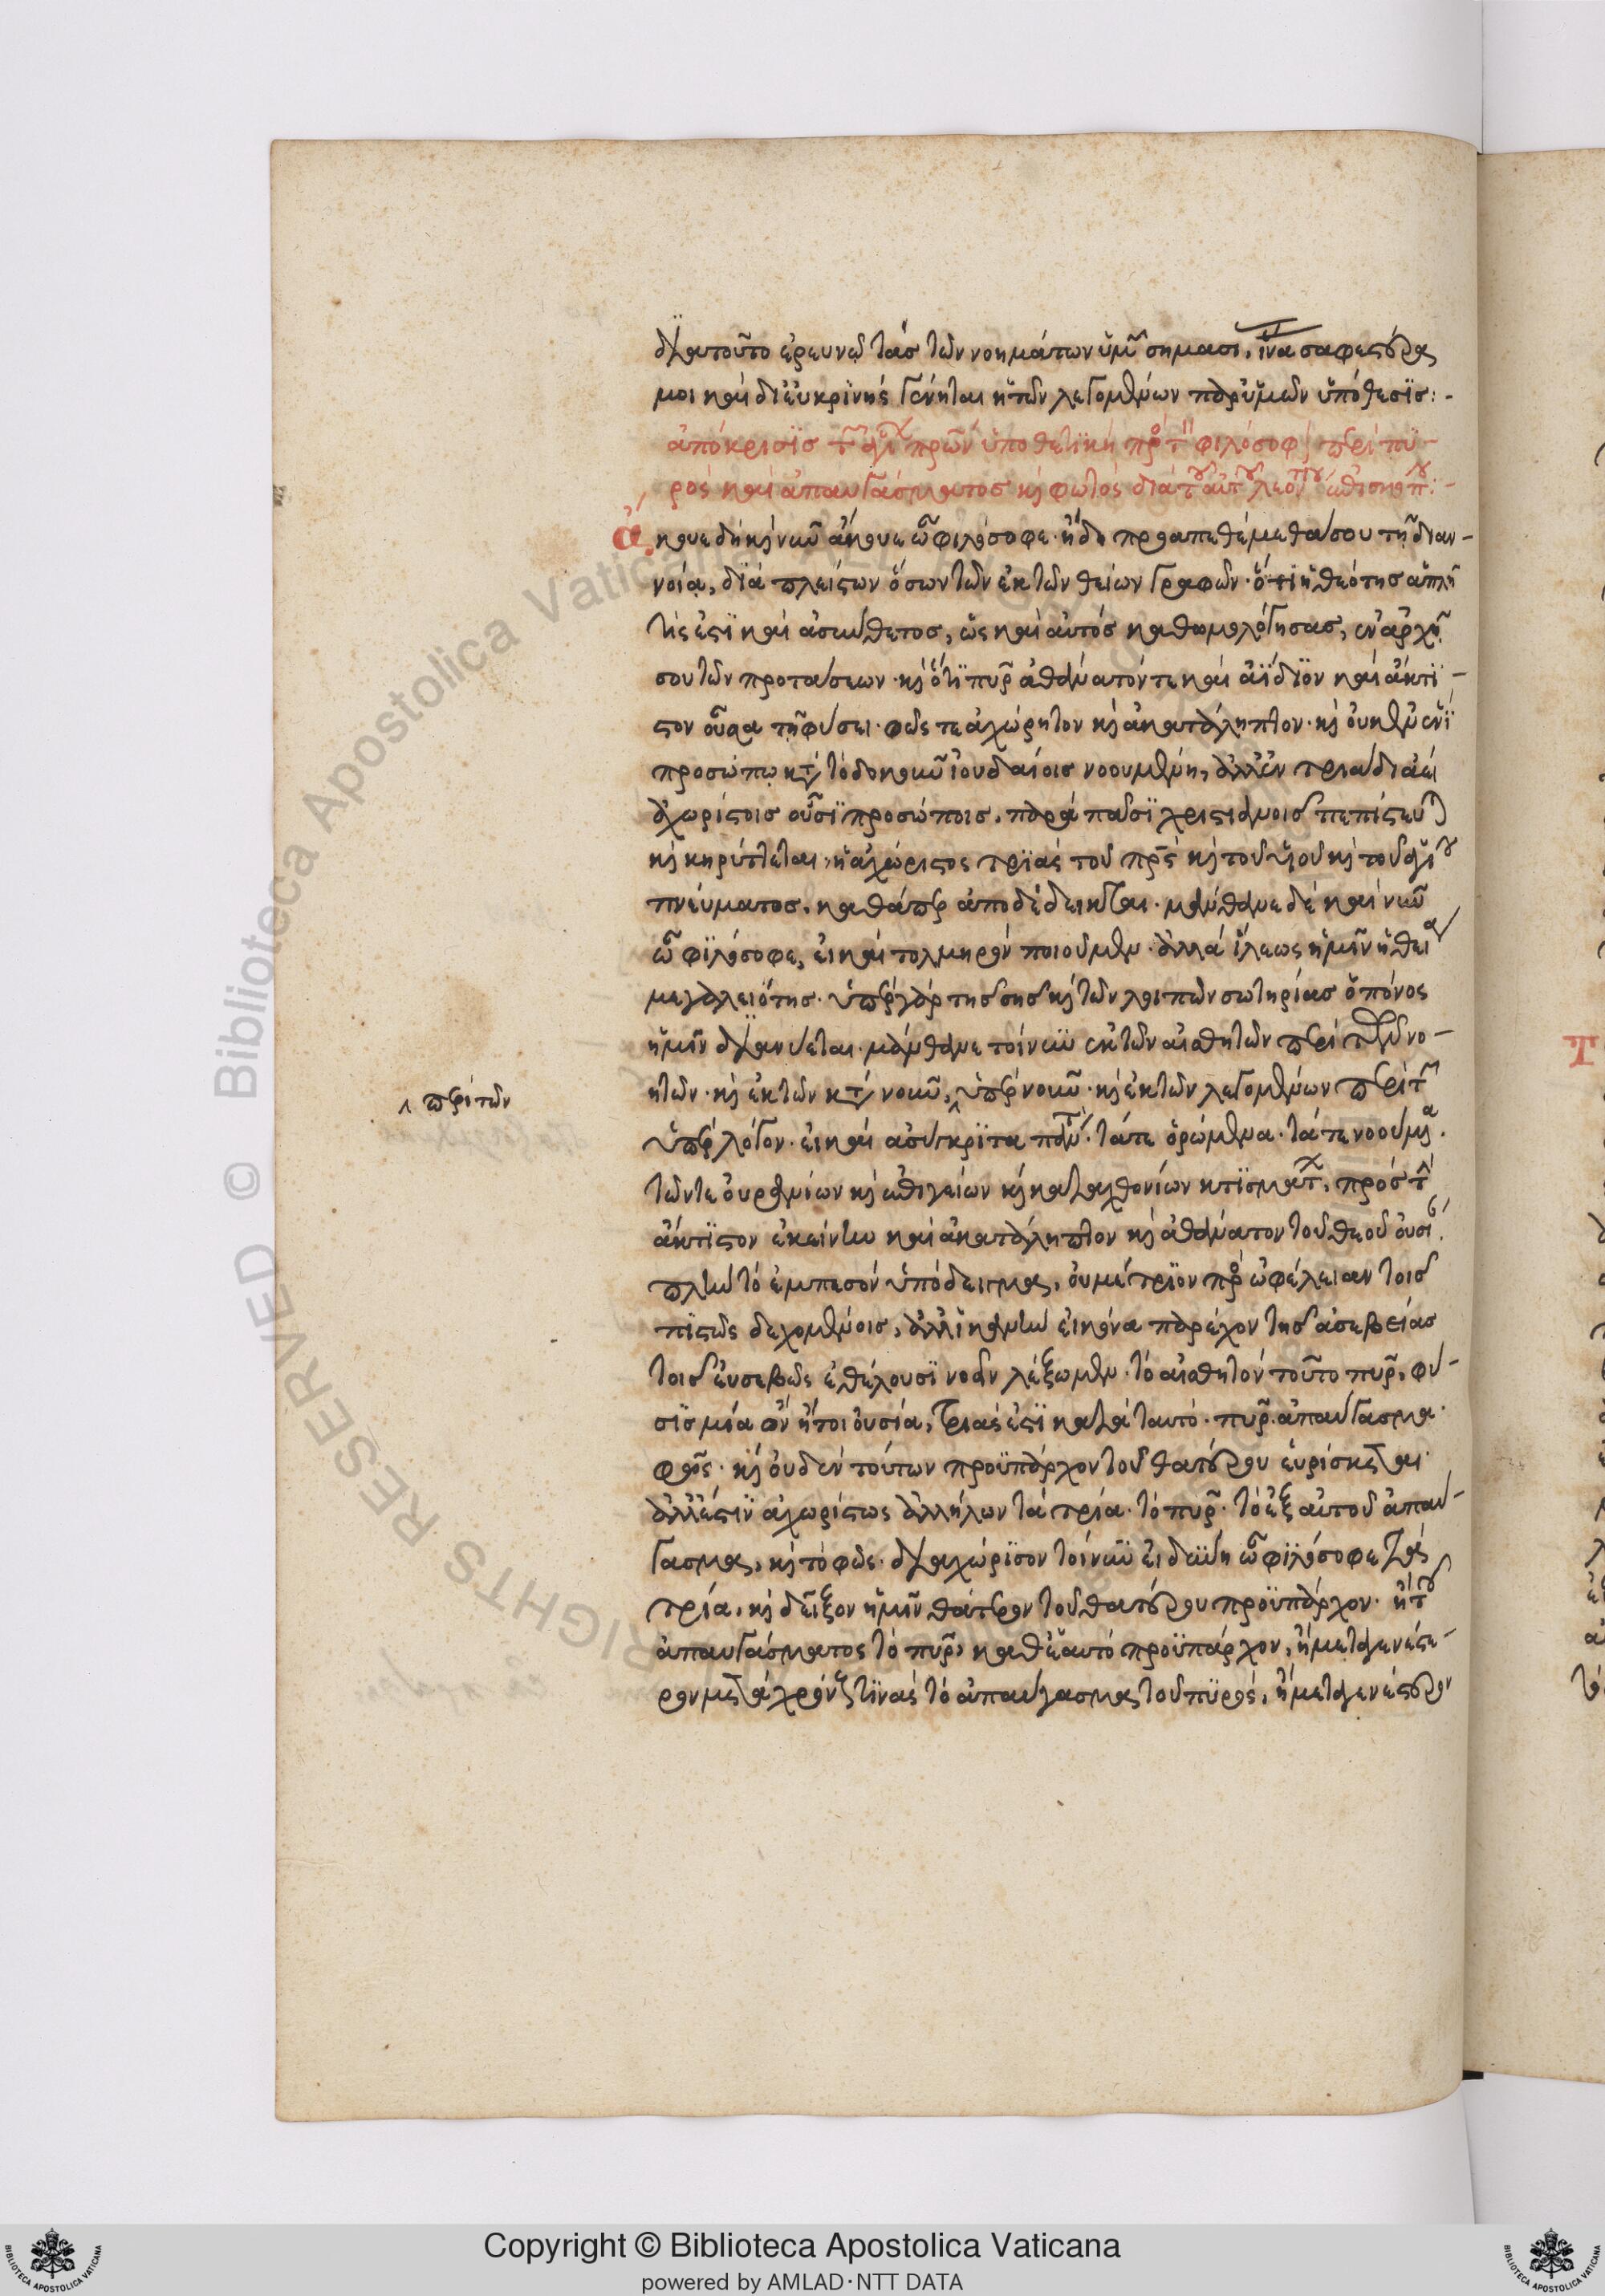 διατοῦτο ἐρευνῶ τὰς τῶν νοημάτων ὑμῶν σημασι. ἵνα σαφεστέρα
μοι καὶ διευκρινὴς γένηται ἡ τῶν λεγομένων παρ' ὑμῶν ὑπόθεσις:-
ἀπόκρισις τῶν ἁγίων πρῶν ὑποθετικὴ πρὸς τὸν φιλόσοφον περὶ πυ-
ρὸς καὶ ἀπαυγάσματος καὶ φωτὸς διὰ τοῦ αὐτοῦ λεοντίου ἐπισκόπου:-
ἄκουε δὴ καὶ νῦν ἄκουε ὦ φιλόσοφε. ἤδη προαπεθέμεθα σου τῇ διαν-
νοίᾳ, διὰ πλείστων ὅσων τῶν ἐκ τῶν θείων γραφῶν. ὅτι ἡ θεότης ἁπλῆ
τίς ἐστι καὶ ἀσύνθετος, ὡς καὶ αὐτὸς καθωμολόγησας, ἐν ἀρχῇ
σου τῶν προτάσεων. καὶ ὅτι πῦρ ἀθάνατόν τε καὶ ἀΐδιον καὶ ἄκτι-
στον οὖσα τῇ φύσει. φῶς τε ἀχώρητον καὶ ἀκατάληπτον. καὶ οὐκ ἐν ἑνὶ
προσώπῳ κατὰ τὸ δοκοῦν ἰουδαίοις νοουμένη, ἀλλ' ἐν τριάδι ἀεὶ
ἀχωρίστοις οὖσι προσώποις, παρὰ πᾶσι χριστιανοῖς πεπίστευται
καὶ κηρύττεται. ἡ ἀχώριστος τριὰς τοῦ πρς καὶ τοῦ υἱοῦ καὶ τοῦ ἁγίου
πνεύματος, καθάπερ ἀποδέδεικται. μάνθανε δὲ καὶ νῦν
ὦ φιλόσοφε, εἰ καὶ τολμηρὸν ποιοῦμεν. ἀλλὰ ἵλεως ἡμῖν ἡ θεία
μεγαλειότης. ὑπὲρ γὰρ τῆς σῆς καὶ τῶν λοιπῶν σωτηρίας ὁ πόνος
ἡμῖν διανύεται. μάνθανε τοίνυν ἐκ τῶν αἰσθητῶν περὶ τῶν νο-
ητῶν. καὶ ἐκ τῶν κατὰ νοῦν, ὑπὲρ νοῦν. καὶ ἐκ τῶν λεγομένων περὶ τῶν
‸ περὶ τῶν
ὑπὲρ λόγον. εἰ καὶ ἀσύγκριτα πάντα. τά τε ὁρώμενα. τά τε νοούμενα.
τῶν τε οὐρανίων καὶ ἐπιγείων καὶ καταχθονίων κτισμάτων, πρὸς τὴν
ἄκτιστον ἐκείνην καὶ ἀκατάληπτον καὶ ἀθάνατον τοῦ θεοῦ οὐσίαν.
πλὴν τὸ ἐμπεσὸν ὑπόδειγμα, οὐ μέτριον πρὸς ὠφέλειαν τοῖς
πιστῶς δεχομένοις, ἀλλ' ἱκανὴν εἰκόνα παρέχον τῆς ἀσεβείας
τοῖς εὐσεβῶς ἐθέλουσι νοεῖν λέξωμεν. τὸ αἰσθητὸν τοῦτο πῦρ, φύ-
σις μία ὂν ἤτοι οὐσία, τριάς ἐστι κατὰ ταυτό. πῦρ. ἀπαύγασμα.
φῶς. καὶ οὐδὲν τούτων προϋπάρχον τοῦ θατέρου εὑρίσκεται.
ἀλλ' ἔστιν ἀχωρίστως ἀλλήλων τὰ τρία. τὸ πῦρ. τὸ ἐξ αὐτοῦ ἀπαύ-
γασμα, καὶ τὸ φῶς. διαχώρισον τοίνυν εἰ δύνῃ ὦ φιλόσοφε τὰ
τρία, καὶ δεῖξον ἡμῖν θάτερον τοῦ θατέρου προϋπάρχον. ἢ τοῦ
ἀπαυγάσματος τὸ πῦρ, καθ' ἑαυτὸ προϋπάρχον, ἢ μεταγενέστε-
ρον μετὰ χρόνους τινὰς τὸ ἀπαύγασμα τοῦ πυρός, ἢ μεταγενέστερον
Copyright © Biblioteca Apostolica Vaticana
powered by AMLAD·NTT DATA